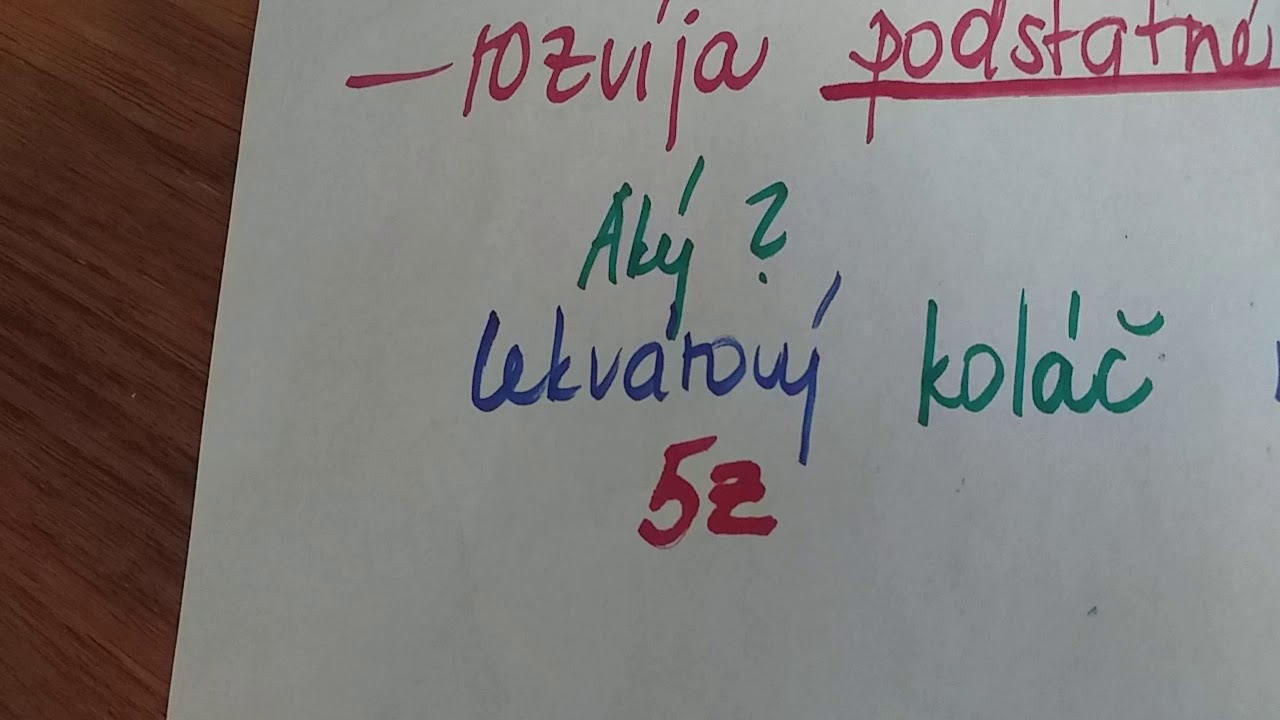 — rozvíja podstatné
Aký?
lekvárový koláč
5z